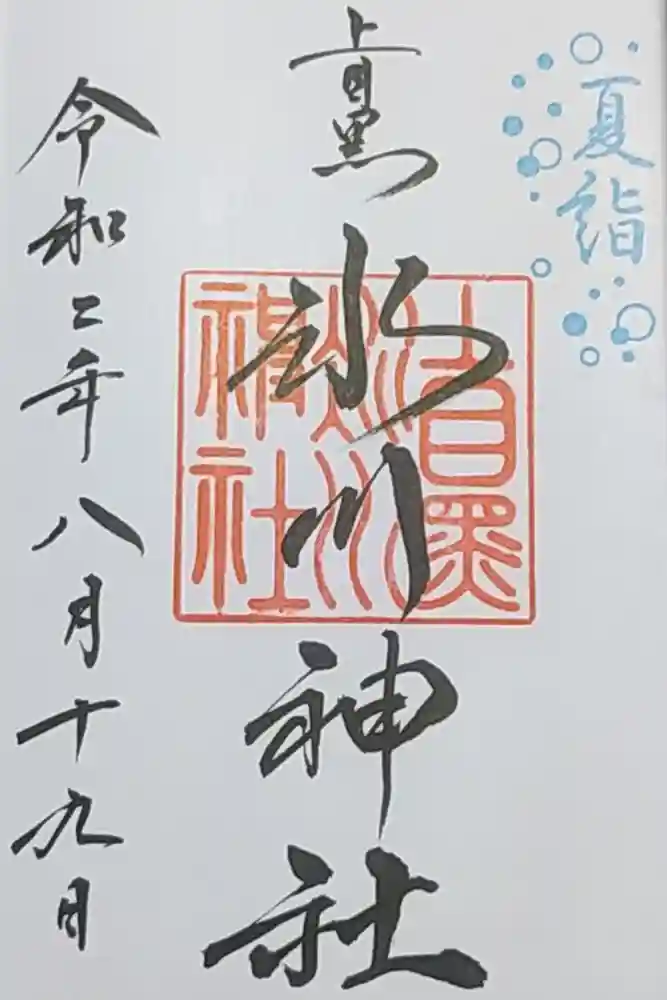 夏詣
上目黒
氷川神社
上目黒氷川神社
令和二年八月十九日